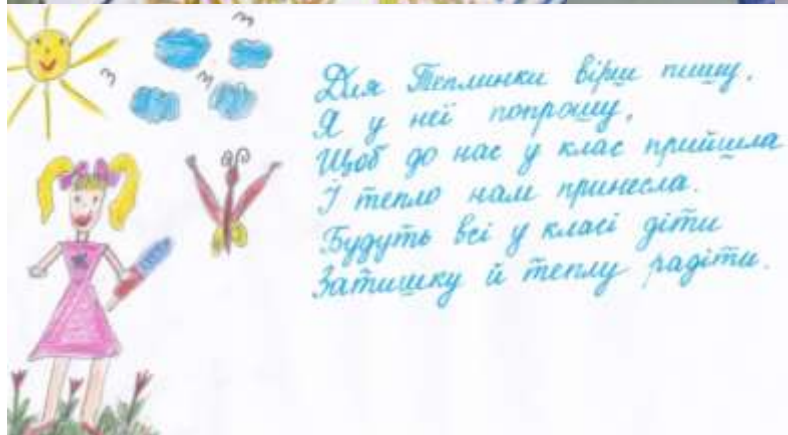 Для Теплинки вірш пишу,
Я у неї попрошу,
Щоб до нас у клас прийшла
І тепло нам принесла.
Будуть всі у класі діти
Затишку й теплу радіти.